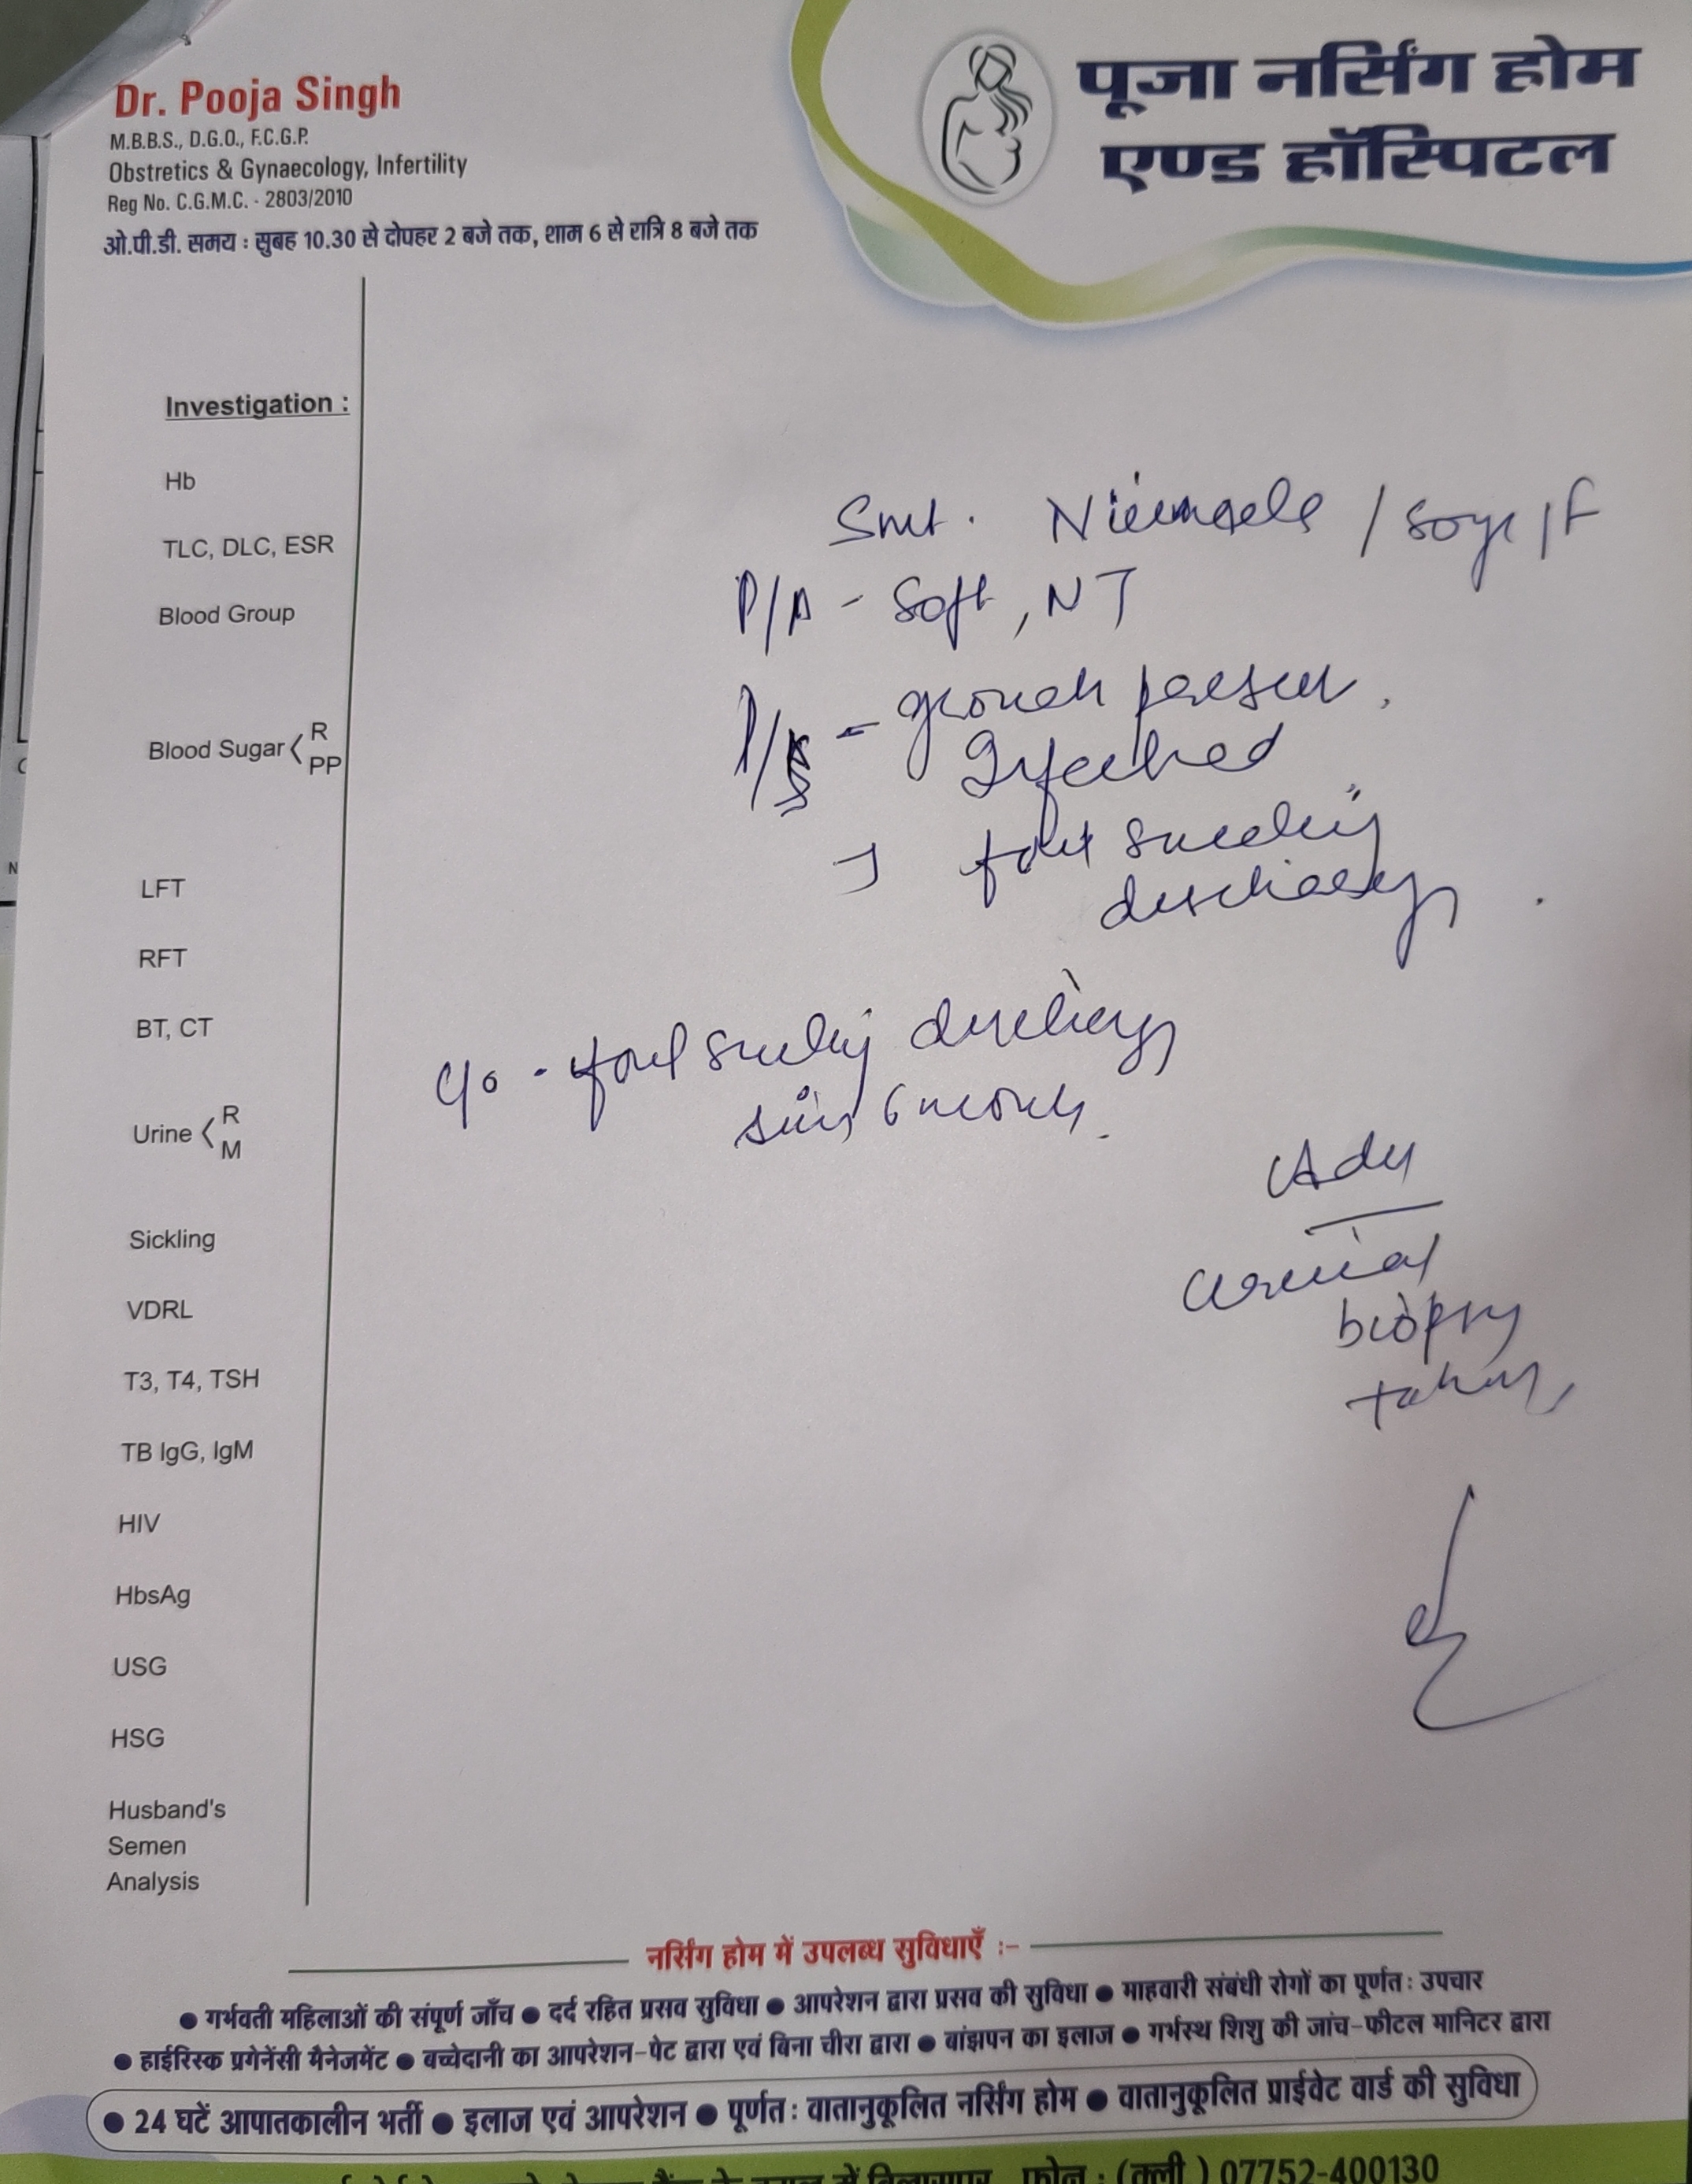 Dr. Pooja Singh
M.B.B.S., D.G.O., F.C.G.P.
Obstretics & Gynaecology, Infertility
Reg No. C.G.M.C. - 2803/2010
ओ.पी.डी. समय : सुबह 10.30 से दोपहर 2 बजे तक, शाम 6 से रात्रि 8 बजे तक
पूजा नर्सिंग होम
एण्ड हॉस्पिटल
Investigation :
Hb
TLC, DLC, ESR
Blood Group
Blood Sugar < R
PP
LFT
RFT
BT, CT
Urine < R
M
Sickling
VDRL
T3, T4, TSH
TB IgG, IgM
HIV
HbsAg
USG
HSG
Husband's
Semen
Analysis
Smt. / 50yr / F
P/A - Soft, NT
P/S - growth present,
Infected
foul smelling
discharge.
C/o - foul smelling discharge
since 6 month.
Adv
cervical
biopsy
taken,
नर्सिंग होम में उपलब्ध सुविधाएँ :-
● गर्भवती महिलाओं की संपूर्ण जाँच ● दर्द रहित प्रसव सुविधा ● आपरेशन द्वारा प्रसव की सुविधा ● माहवारी संबंधी रोगों का पूर्णतः उपचार
● हाईरिस्क प्रगेनेंसी मैनेजमेंट ● बच्चेदानी का आपरेशन-पेट द्वारा एवं बिना चीरा द्वारा ● बांझपन का इलाज ● गर्भस्थ शिशु की जांच-फीटल मानिटर द्वारा
● 24 घटें आपातकालीन भर्ती ● इलाज एवं आपरेशन ● पूर्णतः वातानुकूलित नर्सिंग होम ● वातानुकूलित प्राईवेट वार्ड की सुविधा
बिलासपुर फोन : (क्ली.) 07752-400130